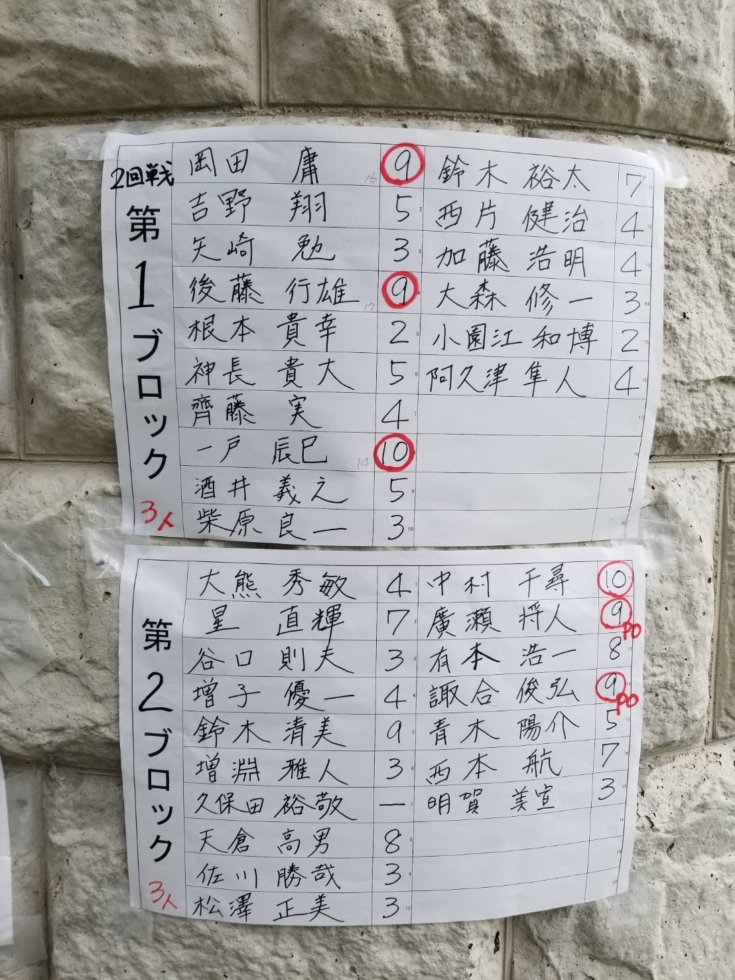 2回戦
第1ブロック
3人
岡田 庸 9
吉野 翔 5
矢崎 勉 3
後藤 行雄 9
根本 貴幸 2
神長 貴大 5
齊藤 実 4
一戸 辰巳 10
酒井 義之 5
柴原 良一 3
鈴木 裕太 7
西片 健治 4
加藤 浩明 4
大森 修一 3
小園江 和博 2
阿久津 隼人 4
第2ブロック
3人
大熊 秀敏 4
星 直輝 7
谷口 則夫 3
増子 優一 4
鈴木 清美 9
増淵 雅人 3
久保田 裕敬 ー
天倉 高男 8
佐川 勝哉 3
松澤 正美 3
中村 千尋 10
廣瀬 将人 9 PO
有本 浩一 8
諏合 俊弘 9 PO
青木 陽介 5
西本 航 7
明賀 美宣 3